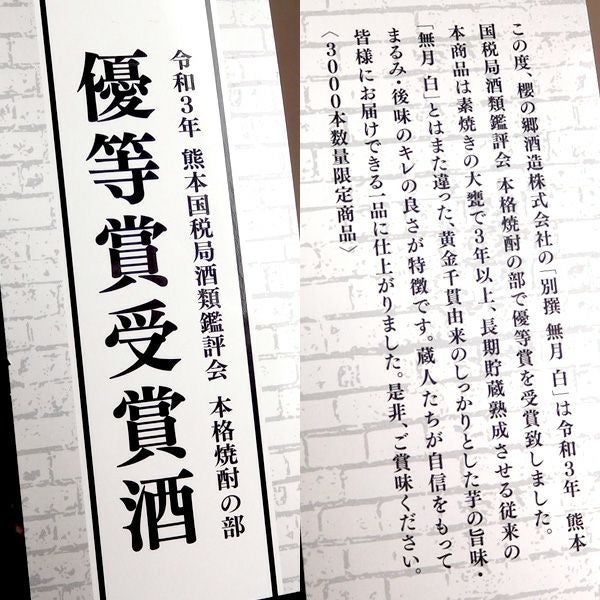 令和3年 熊本国税局酒類鑑評会 本格焼酎の部
優等賞受賞酒
この度、櫻の郷酒造株式会社の「別撰 無月 白」は令和3年 熊本
国税局酒類鑑評会 本格焼酎の部で優等賞を受賞致しました。
本商品は素焼きの大甕で3年以上、長期貯蔵熟成させる従来の
「無月 白」とはまた違った、黄金千貫由来のしっかりとした芋の旨味・
まるみ・後味のキレの良さが特徴です。蔵人たちが自信をもって
皆様にお届けできる一品に仕上がりました。是非、ご賞味ください。
〈3000本数量限定商品〉